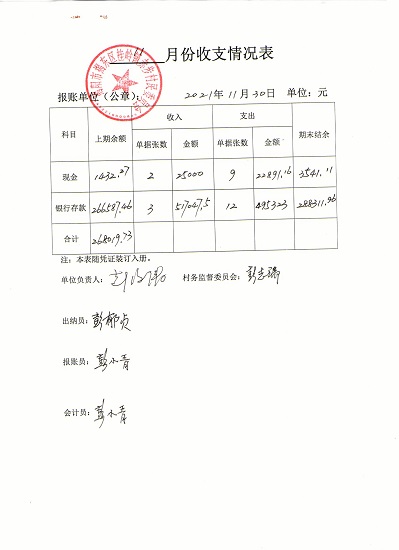 11 月份收支情况表
报账单位（公章）： 2021年11月30日 单位：元
科目 上期余额 收入 支出 期末结余
单据张数 金额 单据张数 金额
现金 1432.27 2 25000 9 22891.16 3541.11
银行存款 266587.46 3 517047.5 12 495323 288311.96
合计 268019.73
注：本表随凭证装订入册。
单位负责人： 村务监督委员会：
出纳员：
报账员：彭小青
会计员：彭小青